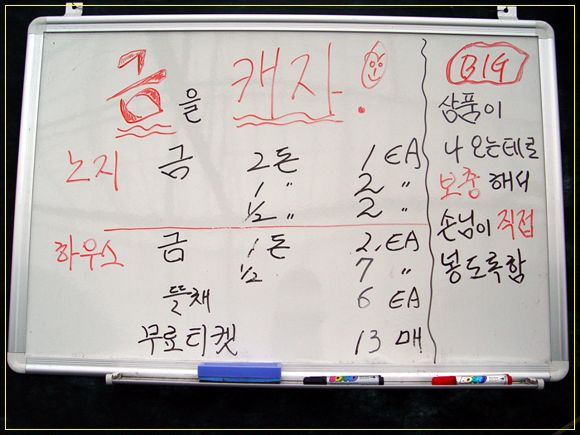 금을 캐자!
노지 금 2돈 1 EA
1 〃 2 〃
1/2 〃 2 〃
하우스 금 1돈 2 EA
1/2 7 〃
뜰채 6 EA
무료티켓 13 매
BIG
상품이
나오는테로
보충해서
손님이 직접
넣도록함